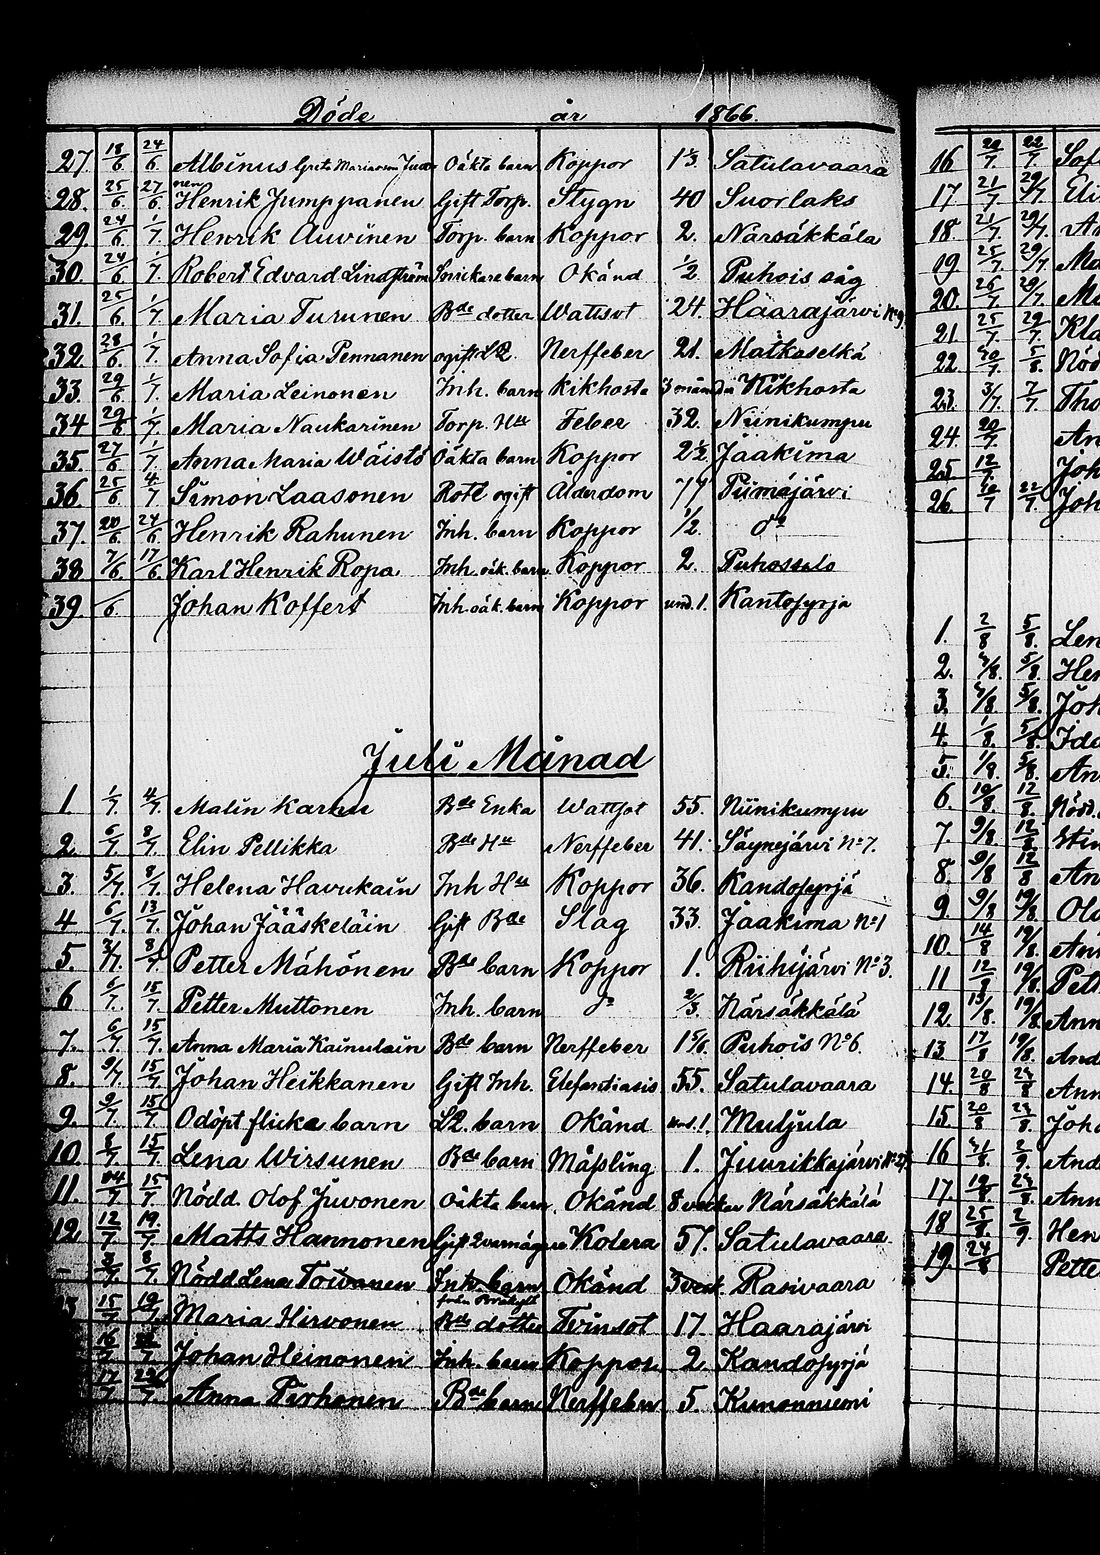 Döde år 1866.
27 18/6 24/6 Albinus Greta Mariasson Oäkta barn Koppor 1 1/3 Satulavaara
28. 25/6 27/6 Henrik Jumppanen Gift Torp. Stygn 40 Suorlaks
29. 24/6 1/7 Henrik Auvinen Torp. barn Koppor 2. Närsäkkälä
30. 24/6 1/7 Robert Edvard Lindström Snickare barn Okänd 1/2 Puhois såg
31. 25/6 1/7 Maria Turunen Bde dotter Wattsot 24. Haarajärvi No 9
32. 28/6 1/7 Anna Sofia Pennanen ogift L2 Nerffeber 21. Matkaselkä
33. 29/6 1/7 Maria Leinonen Inh. barn Kikhosta 3 månader Kikhosta
34 29/6 1/7 Maria Naukarinen Torp. Hu Feber 32. Niinikumpu
35. 27/6 1/7 Anna Maria Wäistö Oäkta barn Koppor 2 1/2 Jaakima
36. 25/6 4/7 Simon Laasonen Rotl ogift Ålderdom 79 Piimäjärvi
37. 20/6 24/6 Henrik Rahunen Inh. barn Koppor 1/2. do
38 7/6 17/6 Karl Henrik Ropa Inh. oäk. barn Koppor 2. Puhossalo
39. /6 Johan Koffert Inh. oäk. barn Koppor und. 1. Kantosyrjä
Juli Månad
1 1/7. 4/7. Malin Karhu Bde Enka Wattsot 55. Niinikumpu
2. 6/7. 8/7. Elin Pellikka Bde Hu Nerffeber 41. Säynejärvi No 7.
3. 5/7. 8/7. Helena Havukain Inh Hu Koppor 36. Kandosyrjä
4 6/7 13/7 Johan Jääskeläin Gift Bde Slag 33. Jaakima No 1
5. 3/7. 8/7. Petter Mähönen Bde barn Koppor 1. Riihijärvi No 3.
6 6/7. 15/7. Petter Muttonen Inh. barn do 2/3. Närsäkkälä
7. 6/7 15/7. Anna Maria Kainulain Bde barn Nerffeber 1 5/6. Puhois No 6.
8. 9/7. 15/7. Johan Heikkanen Gift Inh. Elefantiasis 55. Satulavaara
9. 9/7. 15/7. Odöpt flicke barn L2. barn Okänd und. 1. Muljula
10. 8/7. 15/7. Lena Wirsunen Bde barn Mäßling 1. Juurikkajärvi
11. 14/7 15/7. Nödd. Olof Juvonen oäkta barn. Okänd 8 veckor Närsäkkälä
12. 12/7. 19/7. Matts Hannonen Gift Qvarnägare Kolera 57. Satulavaara
– 3/7. 8/7. Nödd Lena Toivanen Inh. barn Okänd 3 veck. Rasivaara
13 15/7 19/7. Maria Hirvonen från Bräkylä Bde dotter Tvinsot 17 Haarajärvi
16/7 22/7 Johan Heinonen Inh. barn Koppor 2 Kandosyrjä
17/7 22/7. Anna Pirhonen Bde barn Nerffeber 5. Kunonniemi
16 20/7. 22/7. Sof
17. 21/7. 29/7. Eli
18. 21/7. 29/7. An
19 25/7. 29/7. Ma
20. 26/7. 29/7. Ma
21 25/7. 29/7. Kla
22. 5/8. Nöd
23. 3/7. 7/7. Tho
24. 20/7. An
25. 12/7. Joh
26. 20/7 22/7. Joh
1. 2/8 5/8. Len
2. 4/8. 5/8. Hen
3. 4/8. 5/8. Joh
4. 1/8. 5/8. Ida
5. 1/8. 5/8. An
6. 10/8. 12/8. Nödd.
7. 9/8. 12/8. Stin
8. 9/8. 12/8 An
9. 9/8 19/8. Olo
10. 14/8 19/8. Ann
11 12/8 19/8. Pett
12. 13/8. 19/8. Ann
13. 17/8 19/8. And
14. 20/8 24/8 Ann
15. 20/8 24/8. Joha
16 21/8 2/9. And
17. 19/8 24/8 Ann
18 25/8. 2/9. Hen
19. 24/8 Pette